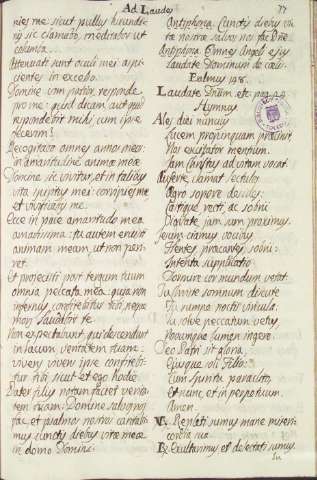 Ad Laudes
77
nies me: sicut pullus hirundi-
nis sic clamabo, meditabor ut
columba.
Attenuati sunt oculi mei aspi-
cientes in excelso.
Domine vim patior, responde
pro me: quid dicam, aut quid
respondebit mihi cum ipse
fecerim?
Recogitabo omnes annos meos:
in amaritudine animæ meæ.
Domine si sic vivitur, et in talibus
vita spiritus mei: corripies me
et vivificabis me.
Ecce in pace amaritudo mea
amarissima: tu autem eruisti
animam meam, ut non peri-
ret.
Et projecisti post tergum tuum
omnia peccata mea: quia non
infernus confitebitur tibi neque
mors laudabit te.
Non expectabunt, qui descendunt
in lacum veritatem tuam:
vivens vivens ipse confitebi-
tur tibi sicut et ego hodie.
Pater filiis notam faciet verita-
tem tuam: Domine salvum
fac, et psalmos nostros cantabi-
mus cunctis diebus vitæ meæ
in domo Domini.
Antiphona. Cunctis diebus vi-
tæ nostræ salvos nos fac Dñe.
Antiphona. Omnes Angeli ejus
laudate Dominum de cœlis.
Psalmus 148.
Laudate Dnum. etc. pag.
Hymnus
Ales diei nuncius
Lucem propinquam præcinit,
Nos excitator mentium
Jam Christus ad vitam vocat.
Auferte, clamat lectulos
Ægro sopore desides:
Castique recti, ac sobrii
Vigilate, jam sum proximus.
Jesum ciamus vocibus
Flentes precantes sobrii:
Intenta supplicatio
Dormire cor mundum vetat.
Tu Christe somnum discute
Tu rumpe noctis vincula.
Tu solve peccatum vetus,
Novumque lumen ingere.
Deo Patri sit gloria.
Ejusque soli Filio:
Cum Spiritu paraclito,
Et nunc, et in perpetuum.
Amen.
V. Repleti sumus mane miseri-
cordia tua.
R. Exultavimus et delectati sumus